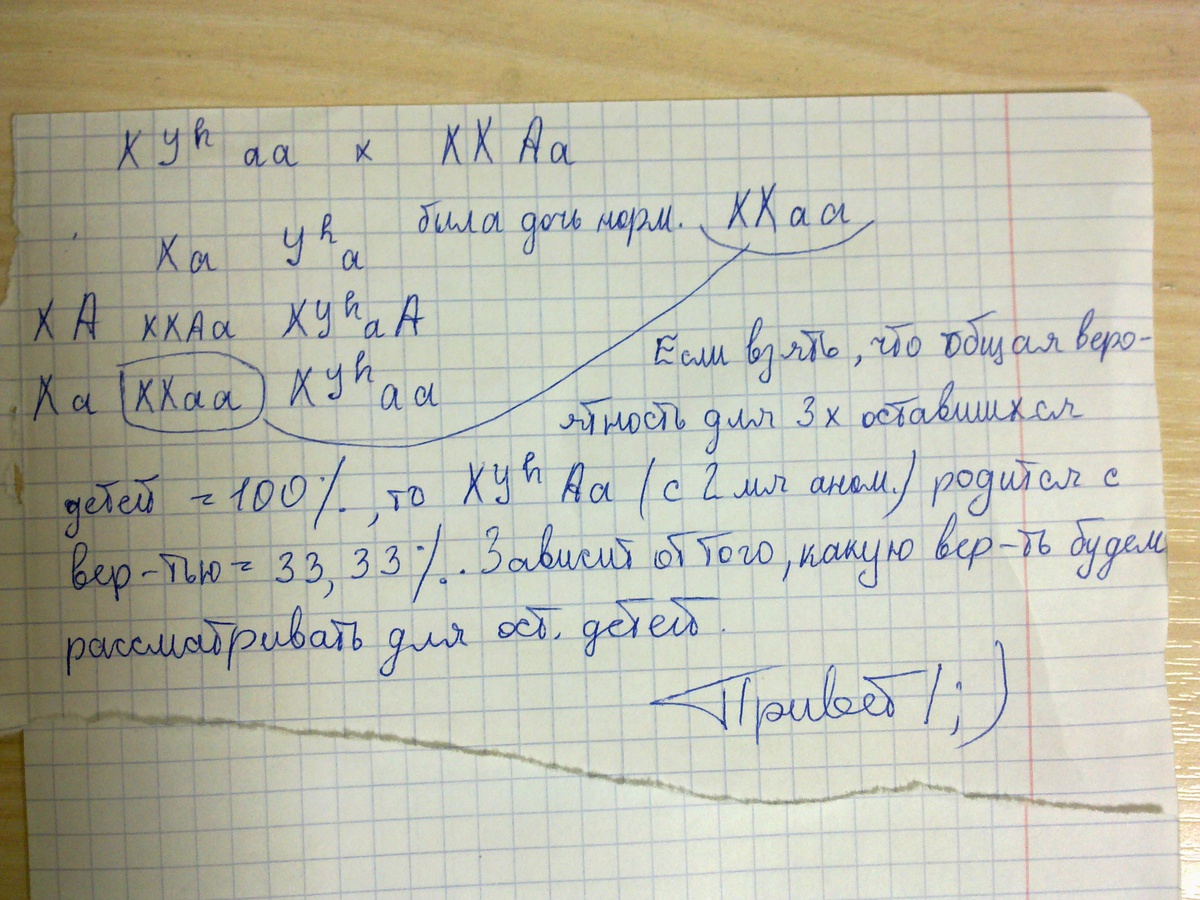 XYʰ aa × XX Aa
была дочь норм. XXaa
Xa Yʰa
XA XXAa XYʰaA
Xa XXaa XYʰaa
Если взять, что общая веро-
ятность для 3х оставшихся
детей = 100%, то XYʰ Aa (с 2 мя аном.) родится с
вер-тью = 33,33%. Зависит от того, какую вер-ть будем
рассматривать для ост. детей.
Привет!;)